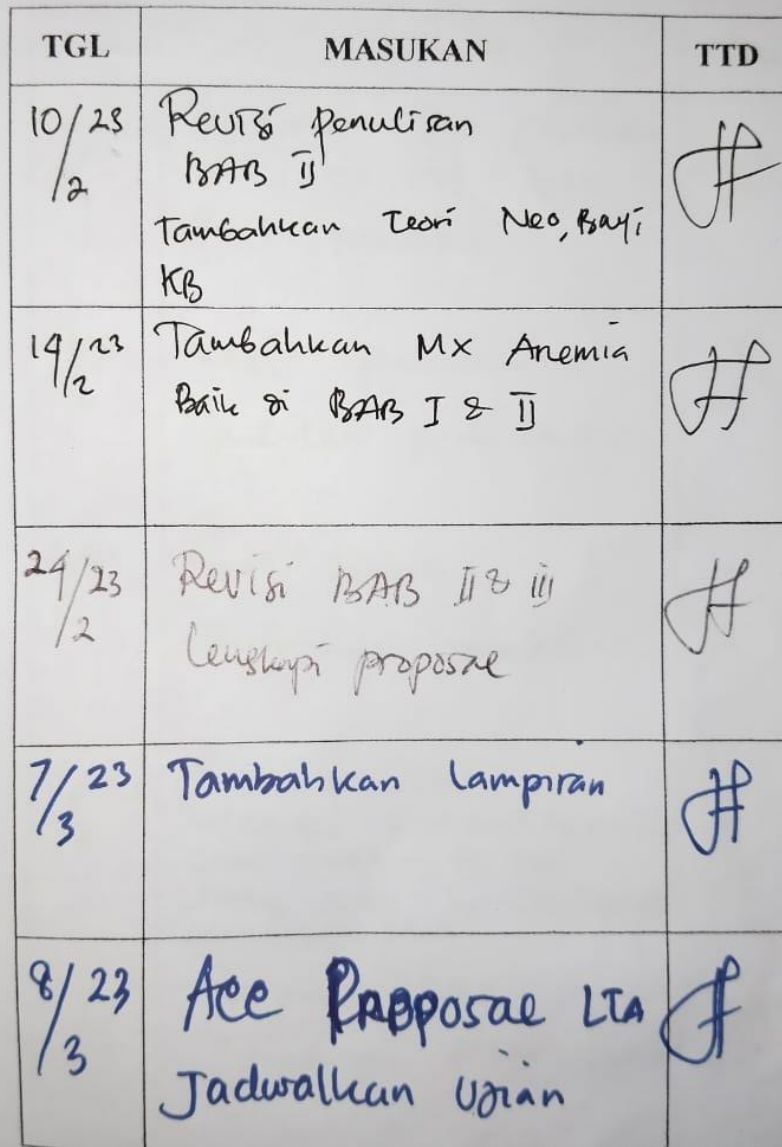 TGL MASUKAN TTD
10/2 23 Revisi penulisan
BAB II
Tambahkan Teori Neo, Bayi
KB
14/2 23 Tambahkan Mx Anemia
Baik di BAB I & II
24/2 23 Revisi BAB II & III
Lengkapi proposal
7/3 23 Tambahkan Lampiran
8/3 23 Acc Proposal LTA
Jadwalkan Ujian